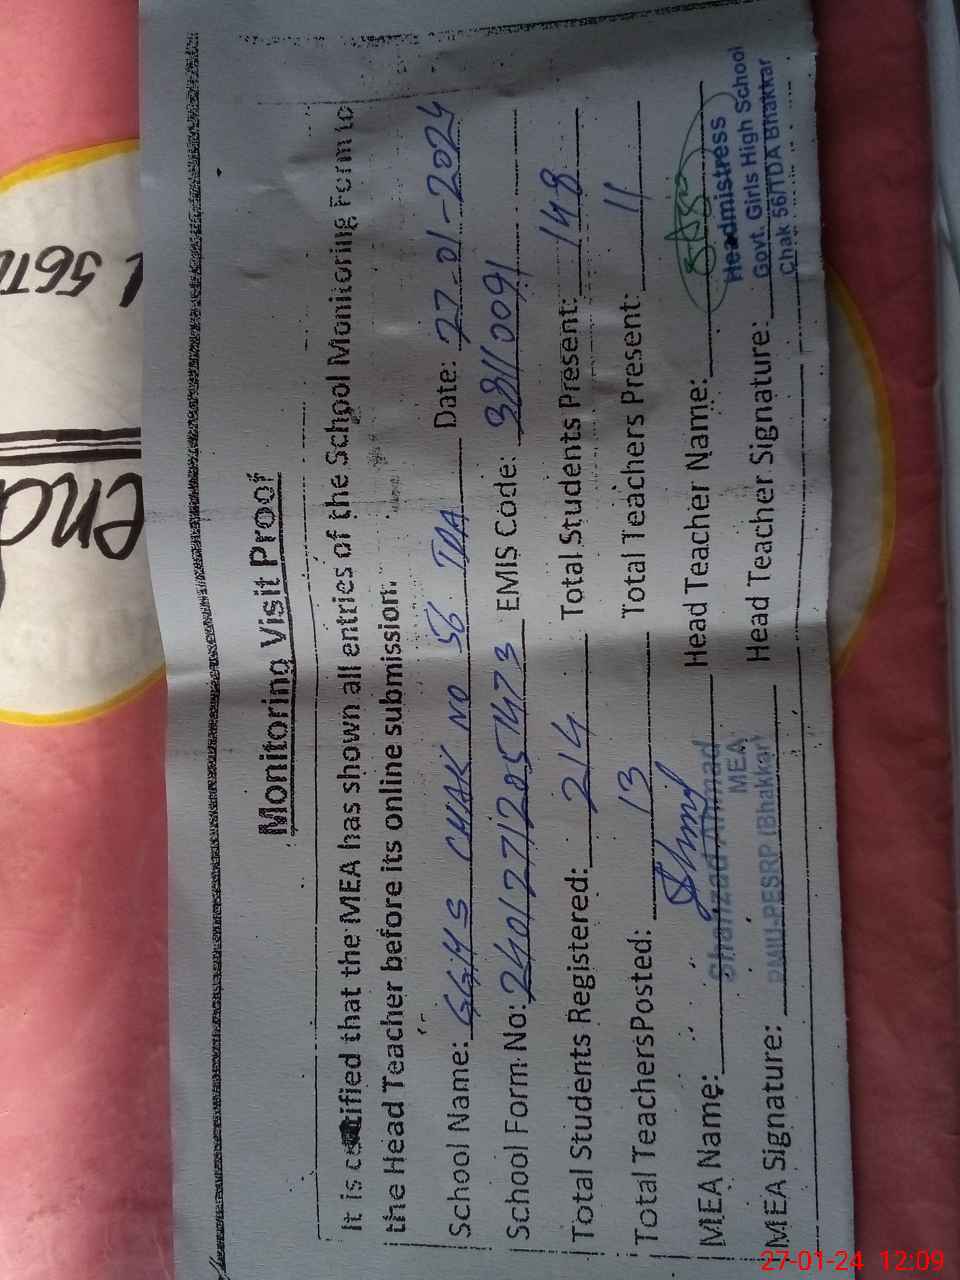 Monitoring Visit Proof
It is certified that the MEA has shown all entries of the School Monitoring Form to
the Head Teacher before its online submission.
School Name: GGHS CHAK NO 56 TDA Date: 27-01-2024
School Form No: 2401271205473 EMIS Code: 38110091
Total Students Registered: 214 Total Students Present: 148
Total Teachers Posted: 13 Total Teachers Present: 11
MEA Name: Shahzad Ahmad Head Teacher Name:
MEA Headmistress
MEA Signature: PMIU-PESRP (Bhakkar) Head Teacher Signature: Govt. Girls High School
Chak 56/TDA Bhakkar
27-01-24 12:09